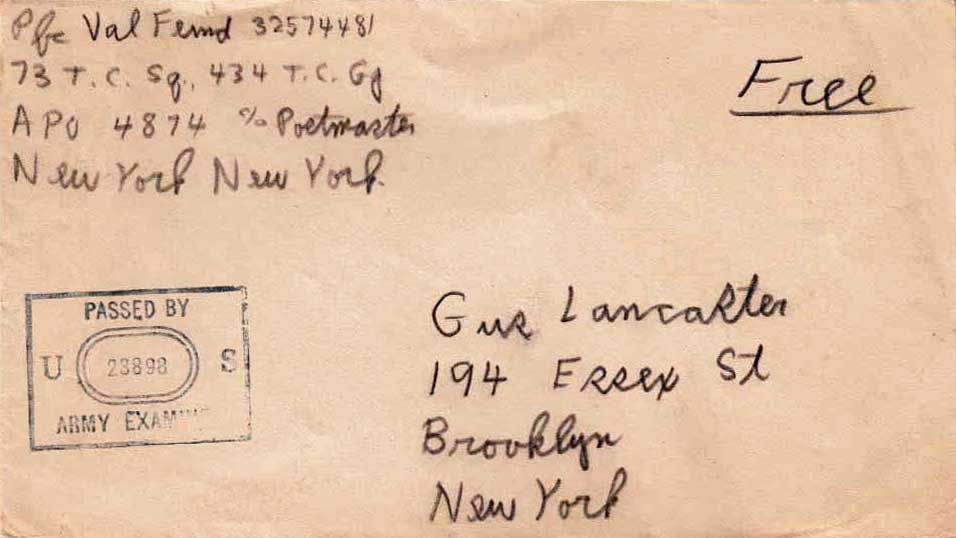 Pfc Val Fernd 32574481
73 T. C. Sq., 434 T. C. Gp
APO 4874 c/o Postmaster
New York New York
Free
PASSED BY
U 23898 S
ARMY EXAMINER
Gus Lancaster
194 Essex St
Brooklyn
New York